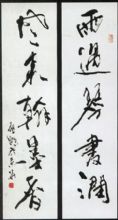 雨過琴書潤
風來翰墨香